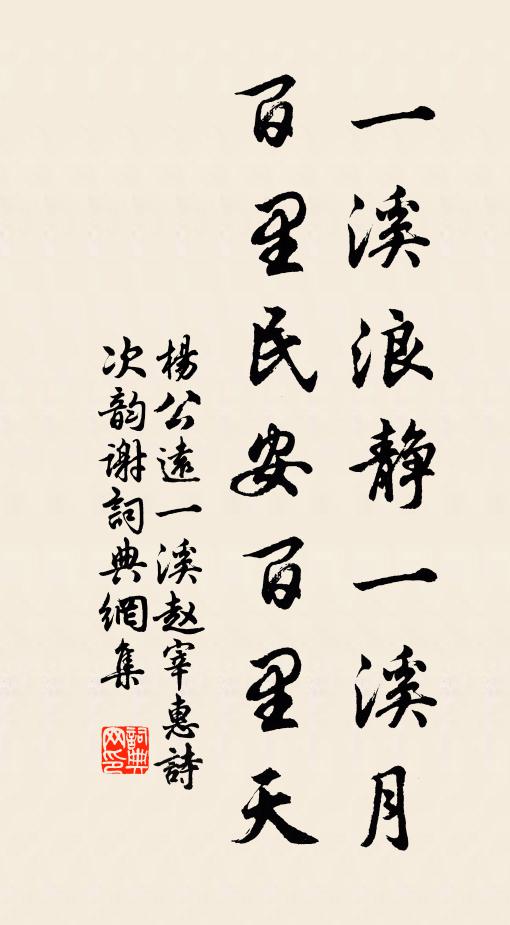 一溪浪静一溪月
百里民安百里天
楊公遠一溪赵宰惠詩
次韵谢詞典網集
詞典
网印